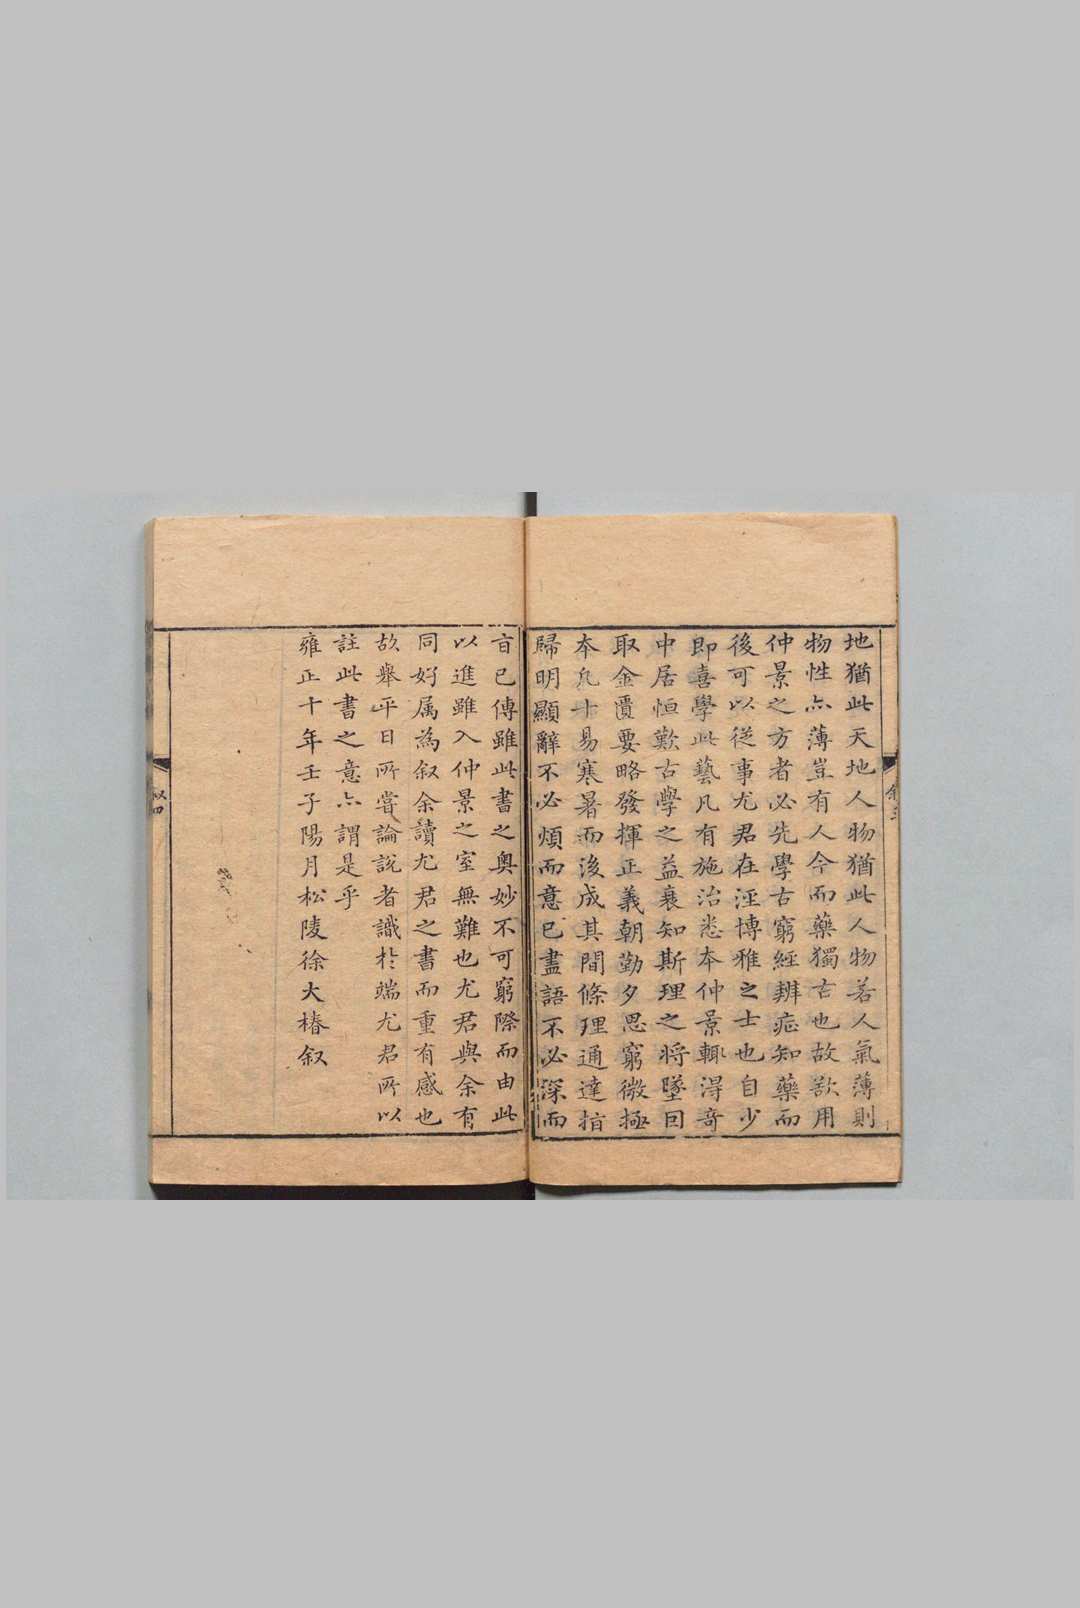 地猶此天地人物猶此人物若人氣薄則
物性亦薄豈有人今而藥獨古也故欲用
仲景之方者必先學古窮經辨症知藥而
後可以從事尤君在涇博雅之士也自少
即喜學此藝凡有施治悉本仲景輒得奇
中居恒歎古學之益衰知斯理之將墜因
取金匱要略發揮正義朝勤夕思窮微極
本凡十易寒暑而後成其間條理通達指
歸明顯辭不必煩而意已盡語不必深而
㫖已傳雖此書之奥妙不可窮際而由此
以進雖入仲景之室無難也尤君與余有
同好属為叙余讀尤君之書而重有感也
故舉平日所嘗論說者識於端尤君所以
註此書之意亦謂是乎
雍正十年壬子陽月松陵徐大椿叙
叙三
叙四